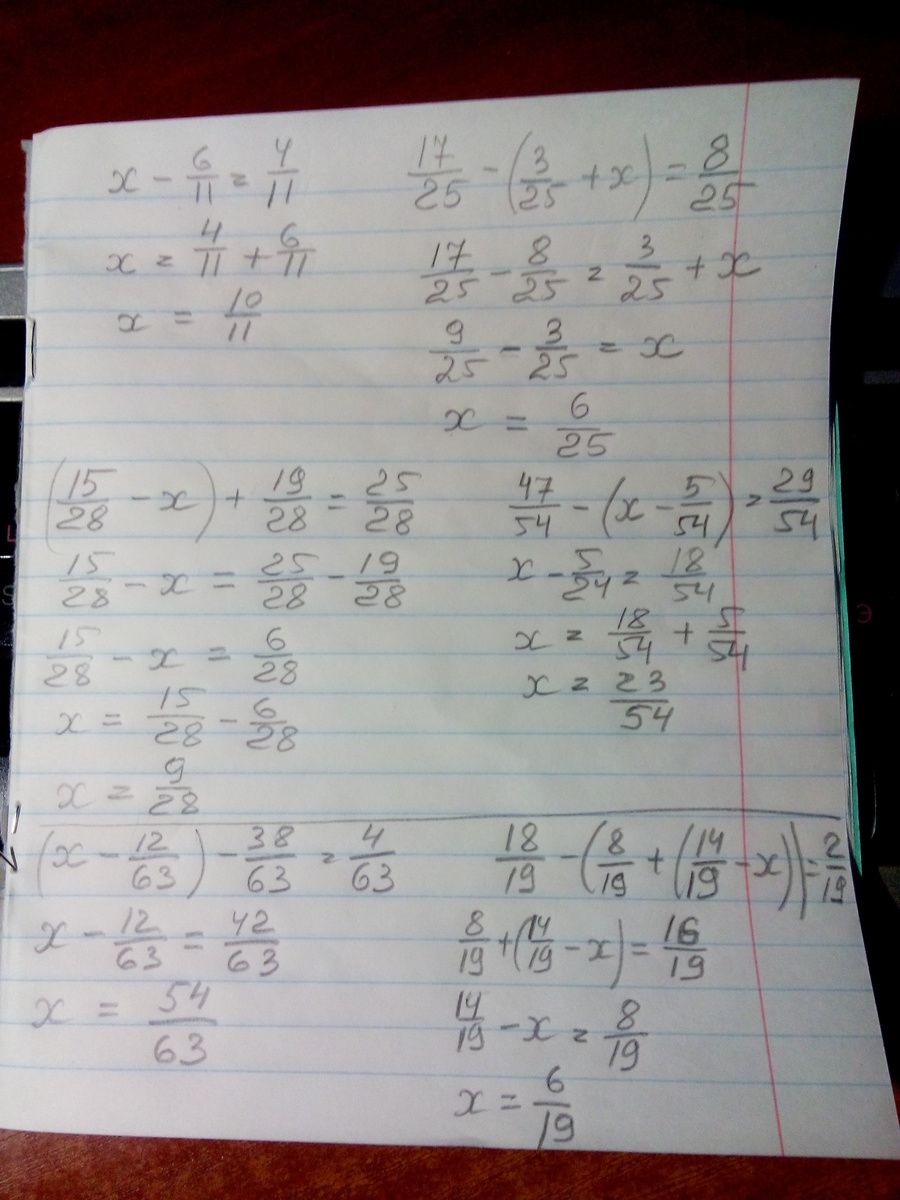 x - 6/11 = 4/11
x = 4/11 + 6/11
x = 10/11
17/25 - (3/25 + x) = 8/25
17/25 - 8/25 = 3/25 + x
9/25 - 3/25 = x
x = 6/25
(15/28 - x) + 19/28 = 25/28
15/28 - x = 25/28 - 19/28
15/28 - x = 6/28
x = 15/28 - 6/28
x = 9/28
47/54 - (x - 5/54) = 29/54
x - 5/24 = 18/54
x = 18/54 + 5/54
x = 23/54
(x - 12/63) - 38/63 = 4/63
x - 12/63 = 42/63
x = 54/63
18/19 - (8/19 + (14/19 - x)) = 2/19
8/19 + (14/19 - x) = 16/19
14/19 - x = 8/19
x = 6/19
Э